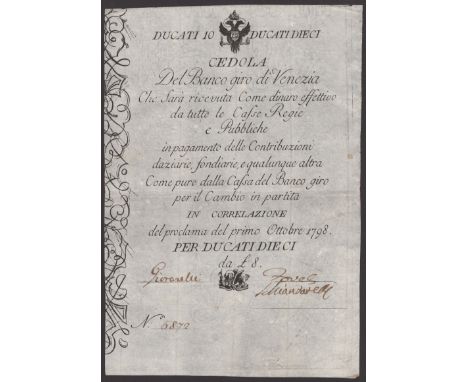 DUCATI 10 DUCATI DIECI
CEDOLA
Del Banco giro di Venezia
Che Sarà ricevuta Come dinaro effettivo
da tutte le Casse Regie
e Pubbliche
in pagamento delle Contribuzioni
daziarie, fondiarie, e qualunque altra
Come pure dalla Cassa del Banco giro
per il Cambio in partita
IN CORRELAZIONE
del proclama del primo Ottobre 1798.
PER DUCATI DIECI
da £ 8.
Giovanelli
N.° 5872